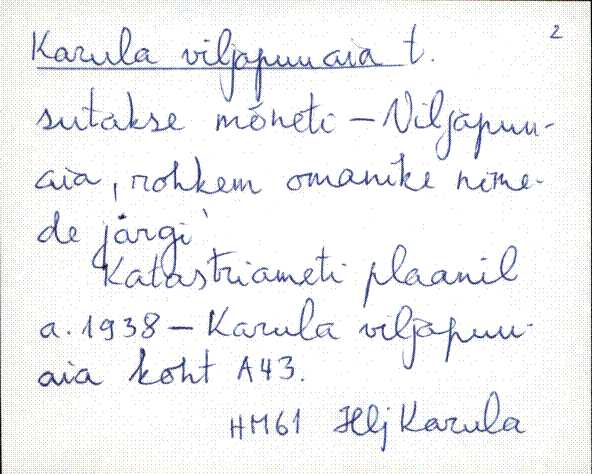 2
Karula viljapuuaia t.
sutakse mõneti – Viljapuu-
aia, rohkem omanike nime-
de järgi'
Katastriameti plaanil
a. 1938 – Karula viljapuu-
aia koht A43.
HM61 Hlj Karula